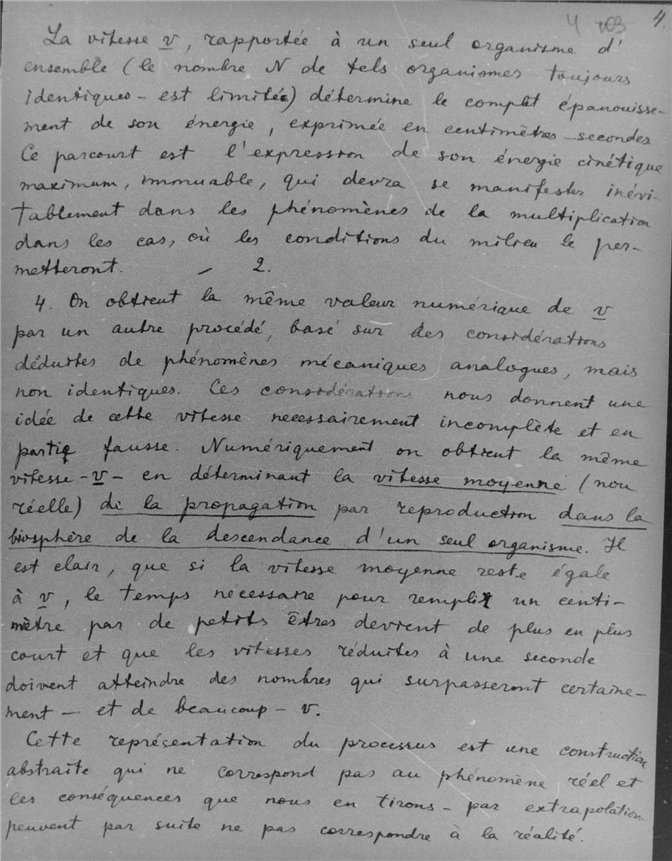 4 203
4.
La vitesse v, rapportée à un seul organisme d'
ensemble (le nombre N de tels organismes toujours
identiques - est limitée) détermine le complet épanouisse-
ment de son énergie, exprimée en centimètres-secondes
Ce parcourt est l'expression de son énergie cinétique
maximum, immuable, qui devra se manifester inévi-
tablement dans les phénomènes de la multiplication
dans les cas, où les conditions du milieu le per-
metteront.
- 2.
4. On obtient la même valeur numérique de v
par un autre procédé, basé sur des considérations
déduites de phénomènes mécaniques analogues, mais
non identiques. Ces considérations nous donnent une
idée de cette vitesse necessairement incomplète et en
partie fausse. Numériquement on obtient la même
vitesse - v - en déterminant la vitesse moyenne (non
réelle) de la propagation par reproduction dans la
biosphère de la descendance d'un seul organisme. Il
est clair, que si la vitesse moyenne reste égale
à v, le temps nécessaire pour remplir un centi-
mètre par de petits êtres devient de plus en plus
court et que les vitesses réduites à une seconde
doivent atteindre des nombres qui surpasseront certaine-
ment - et de beaucoup - v.
Cette représentation du processus est une construction
abstraite qui ne correspond pas au phénomène réel et
les conséquences que nous en tirons - par extrapolation
peuvent par suite ne pas correspondre à la réalité.